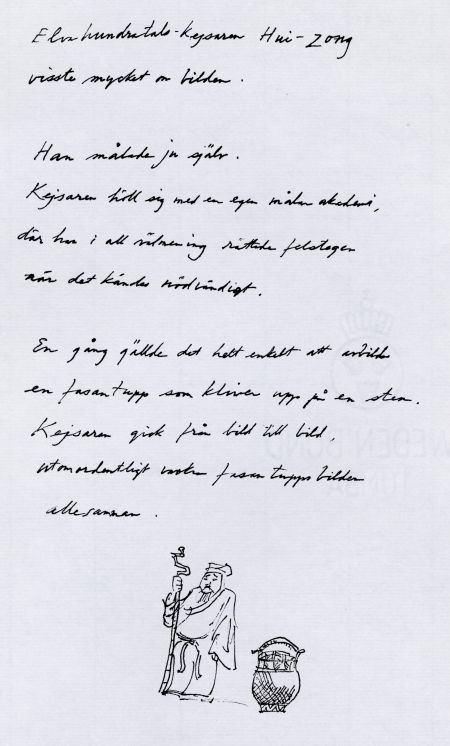 Elvahundratals-Kejsaren Hui-Zong
visste mycket om bilden.
Han målade ju själv.
Kejsaren höll sig med en egen målarakademi,
där han i all välmening rättade felstegen
när det kändes nödvändigt.
En gång gällde det helt enkelt att avbilda
en fasantupp som kliver upp på en sten.
Kejsaren gick från bild till bild,
utomordentligt vackra fasantuppsbilder
allesamman.
WEDEN BOND